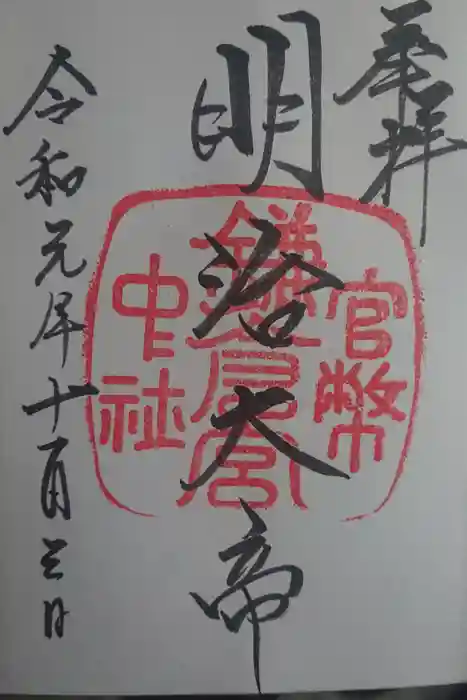 奉拝
明治大帝
官幣
鎌倉宮
中社
令和元年十一月三日